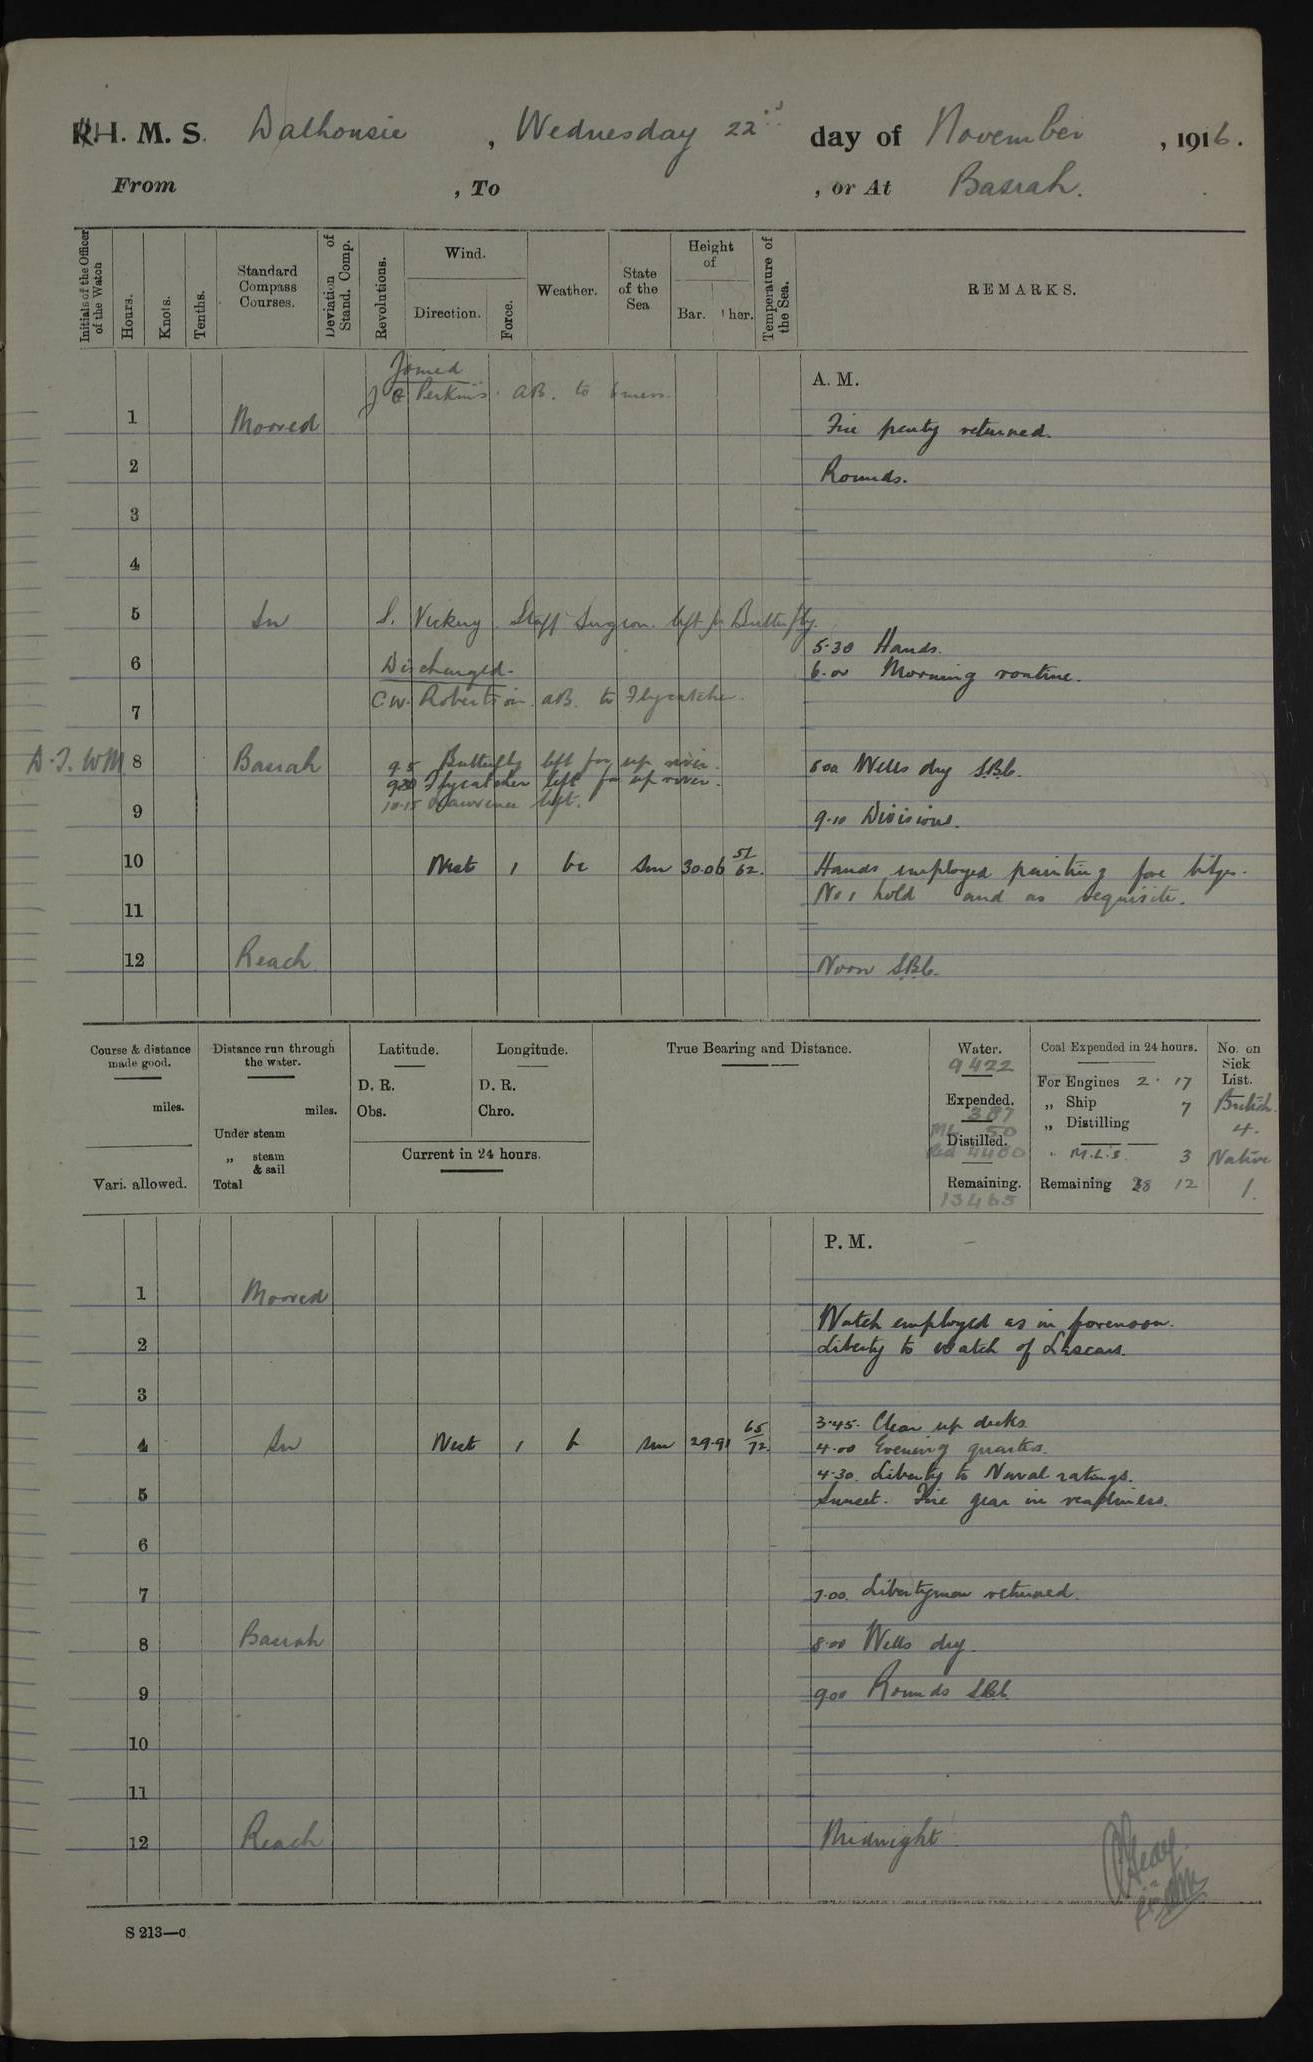 H. M. S. Dalhousie, Wednesday 22nd day of November, 1916.
From , To , or At Basrah.
Initials of the Officer of the Watch
Hours.
Knots.
Tenths.
Standard Compass Courses.
Deviation of Stand. Comp.
Revolutions.
Wind.
Direction.
Force.
Weather.
State of the Sea
Height of
Bar.
Ther.
Temperature of the Sea.
REMARKS.
Joined
A. M.
Perkins. AB. to 6 mess.
1 Moored Fire party returned.
2 Rounds.
3
4
5 In S. Vickery Staff Surgeon left for Butterfly.
5.30 Hands.
6 Discharged. 6.00 Morning routine.
C.W. Robertson. AB. to Flycatcher.
7
8 Basrah 9.5 Butterfly left for up river. 8.00 Wells dry S.B.C.
9.30 Flycatcher left for up river.
10.15 Lawrence left.
9 9.10 Divisions.
10 West 1 bc Sm 30.06 51/62. Hands employed painting fore bilges.
No 1 hold and as requisite.
11
12 Reach Noon S.B.C.
Course & distance made good.
miles.
Vari. allowed.
Distance run through the water.
miles.
Under steam
„ steam & sail
Total
Latitude.
D. R.
Obs.
Longitude.
D. R.
Chro.
Current in 24 hours.
True Bearing and Distance.
Water.
9422
Expended.
387
ML 50
Distilled.
Rcd 4480
Remaining.
13465
Coal Expended in 24 hours.
For Engines 2. 17
„ Ship 7
„ Distilling
" M.L's. 3
Remaining 38 12
No. on Sick List.
British.
4.
Native
1.
P. M.
1 Moored
Watch employed as in forenoon.
2 Liberty to watch of Lascars.
3
3.45. Clear up decks.
4 In West 1 b Sm 29.91 65/72. 4.00 Evening quarters.
4.30. Liberty to Naval ratings.
5 Sunset. Fire gear in readiness.
6
7 7.00. Libertymen returned.
8 Basrah 8.00 Wells dry.
9 9.00 Rounds S.B.C.
10
11
12 Reach Midnight
S 213—c